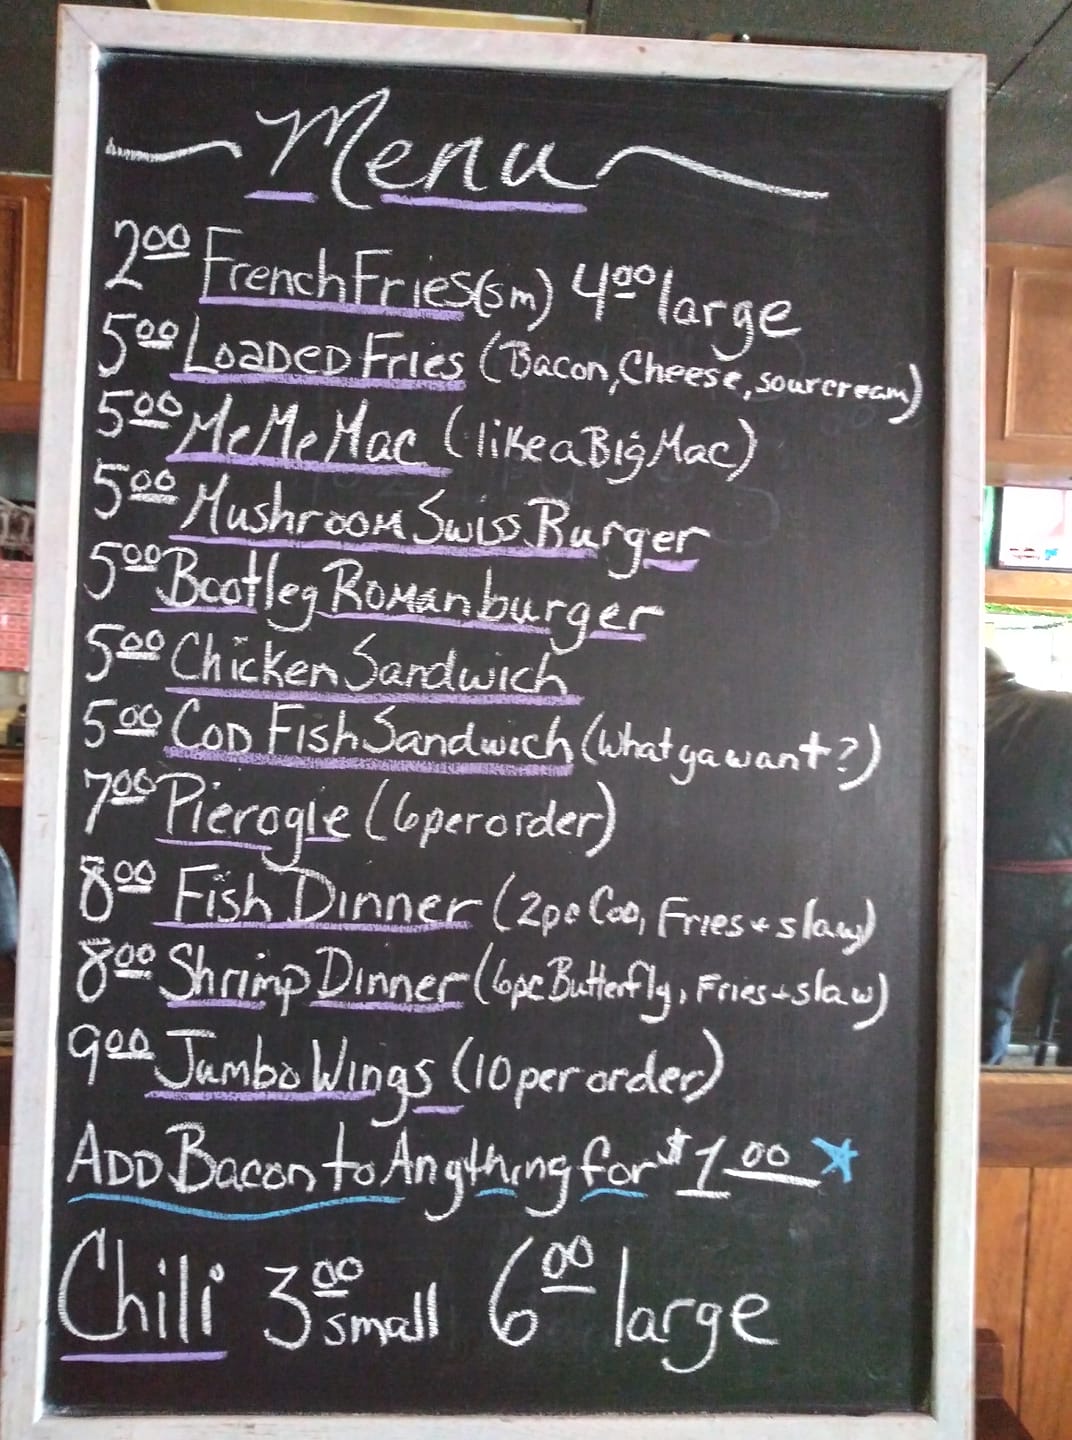 Menu
2.00 French Fries (sm) 4.00 large
5.00 Loaded Fries (Bacon, Cheese, sour cream)
5.00 MeMe Mac (like a Big Mac)
5.00 Mushroom Swiss Burger
5.00 Bootleg Roman burger
5.00 Chicken Sandwich
5.00 Cod Fish Sandwich (What ya want?)
7.00 Pierogie (6 per order)
8.00 Fish Dinner (2pc Cod, Fries + slaw)
8.00 Shrimp Dinner (6pc Butterfly, Fries + slaw)
9.00 Jumbo Wings (10 per order)
ADD Bacon to Angything for $1.00
Chili 3.00 small 6.00 large